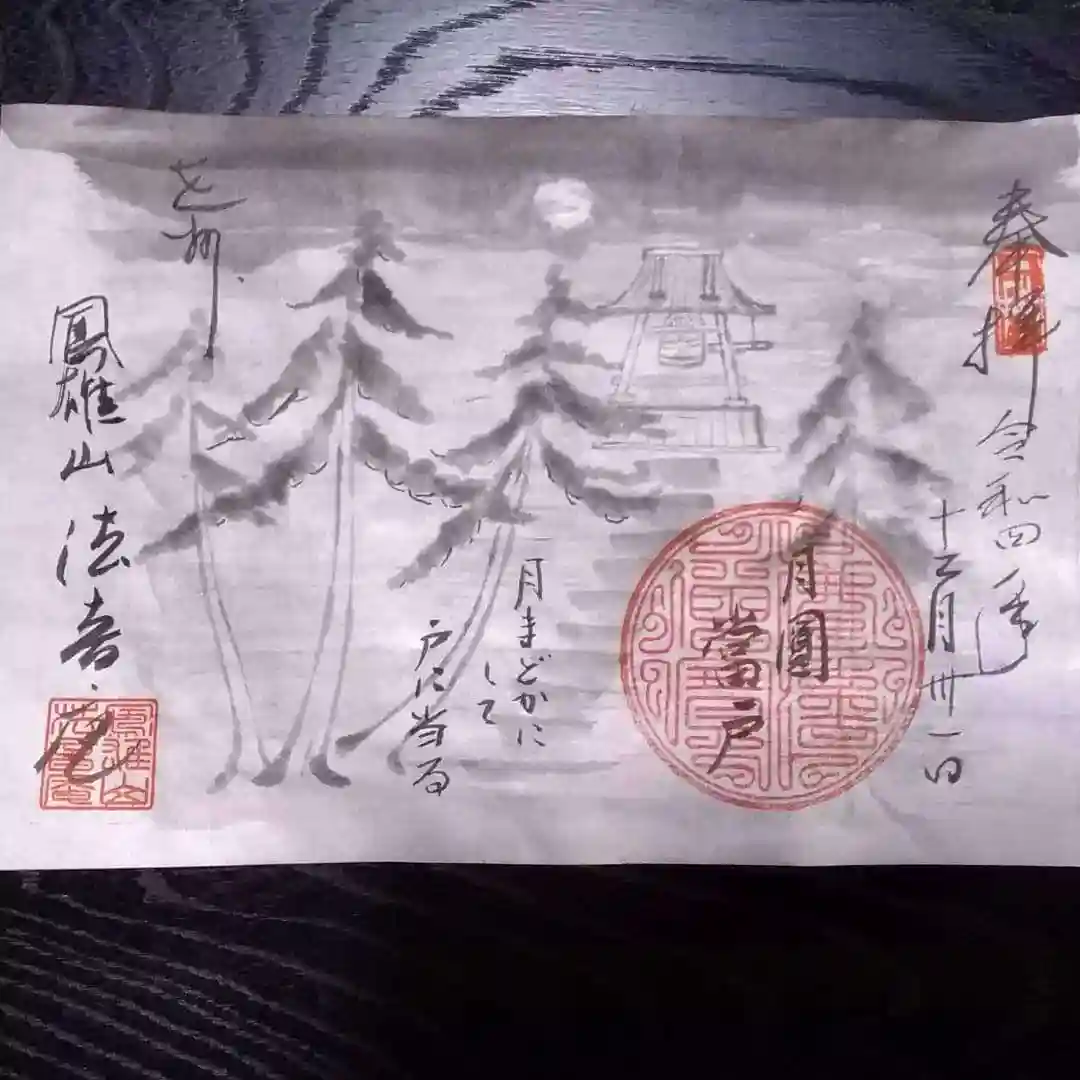 奉拝
令和四年
十二月卅一日
月圓
當戸
月まどかに
して
戸に当る
鳳雄山 法音